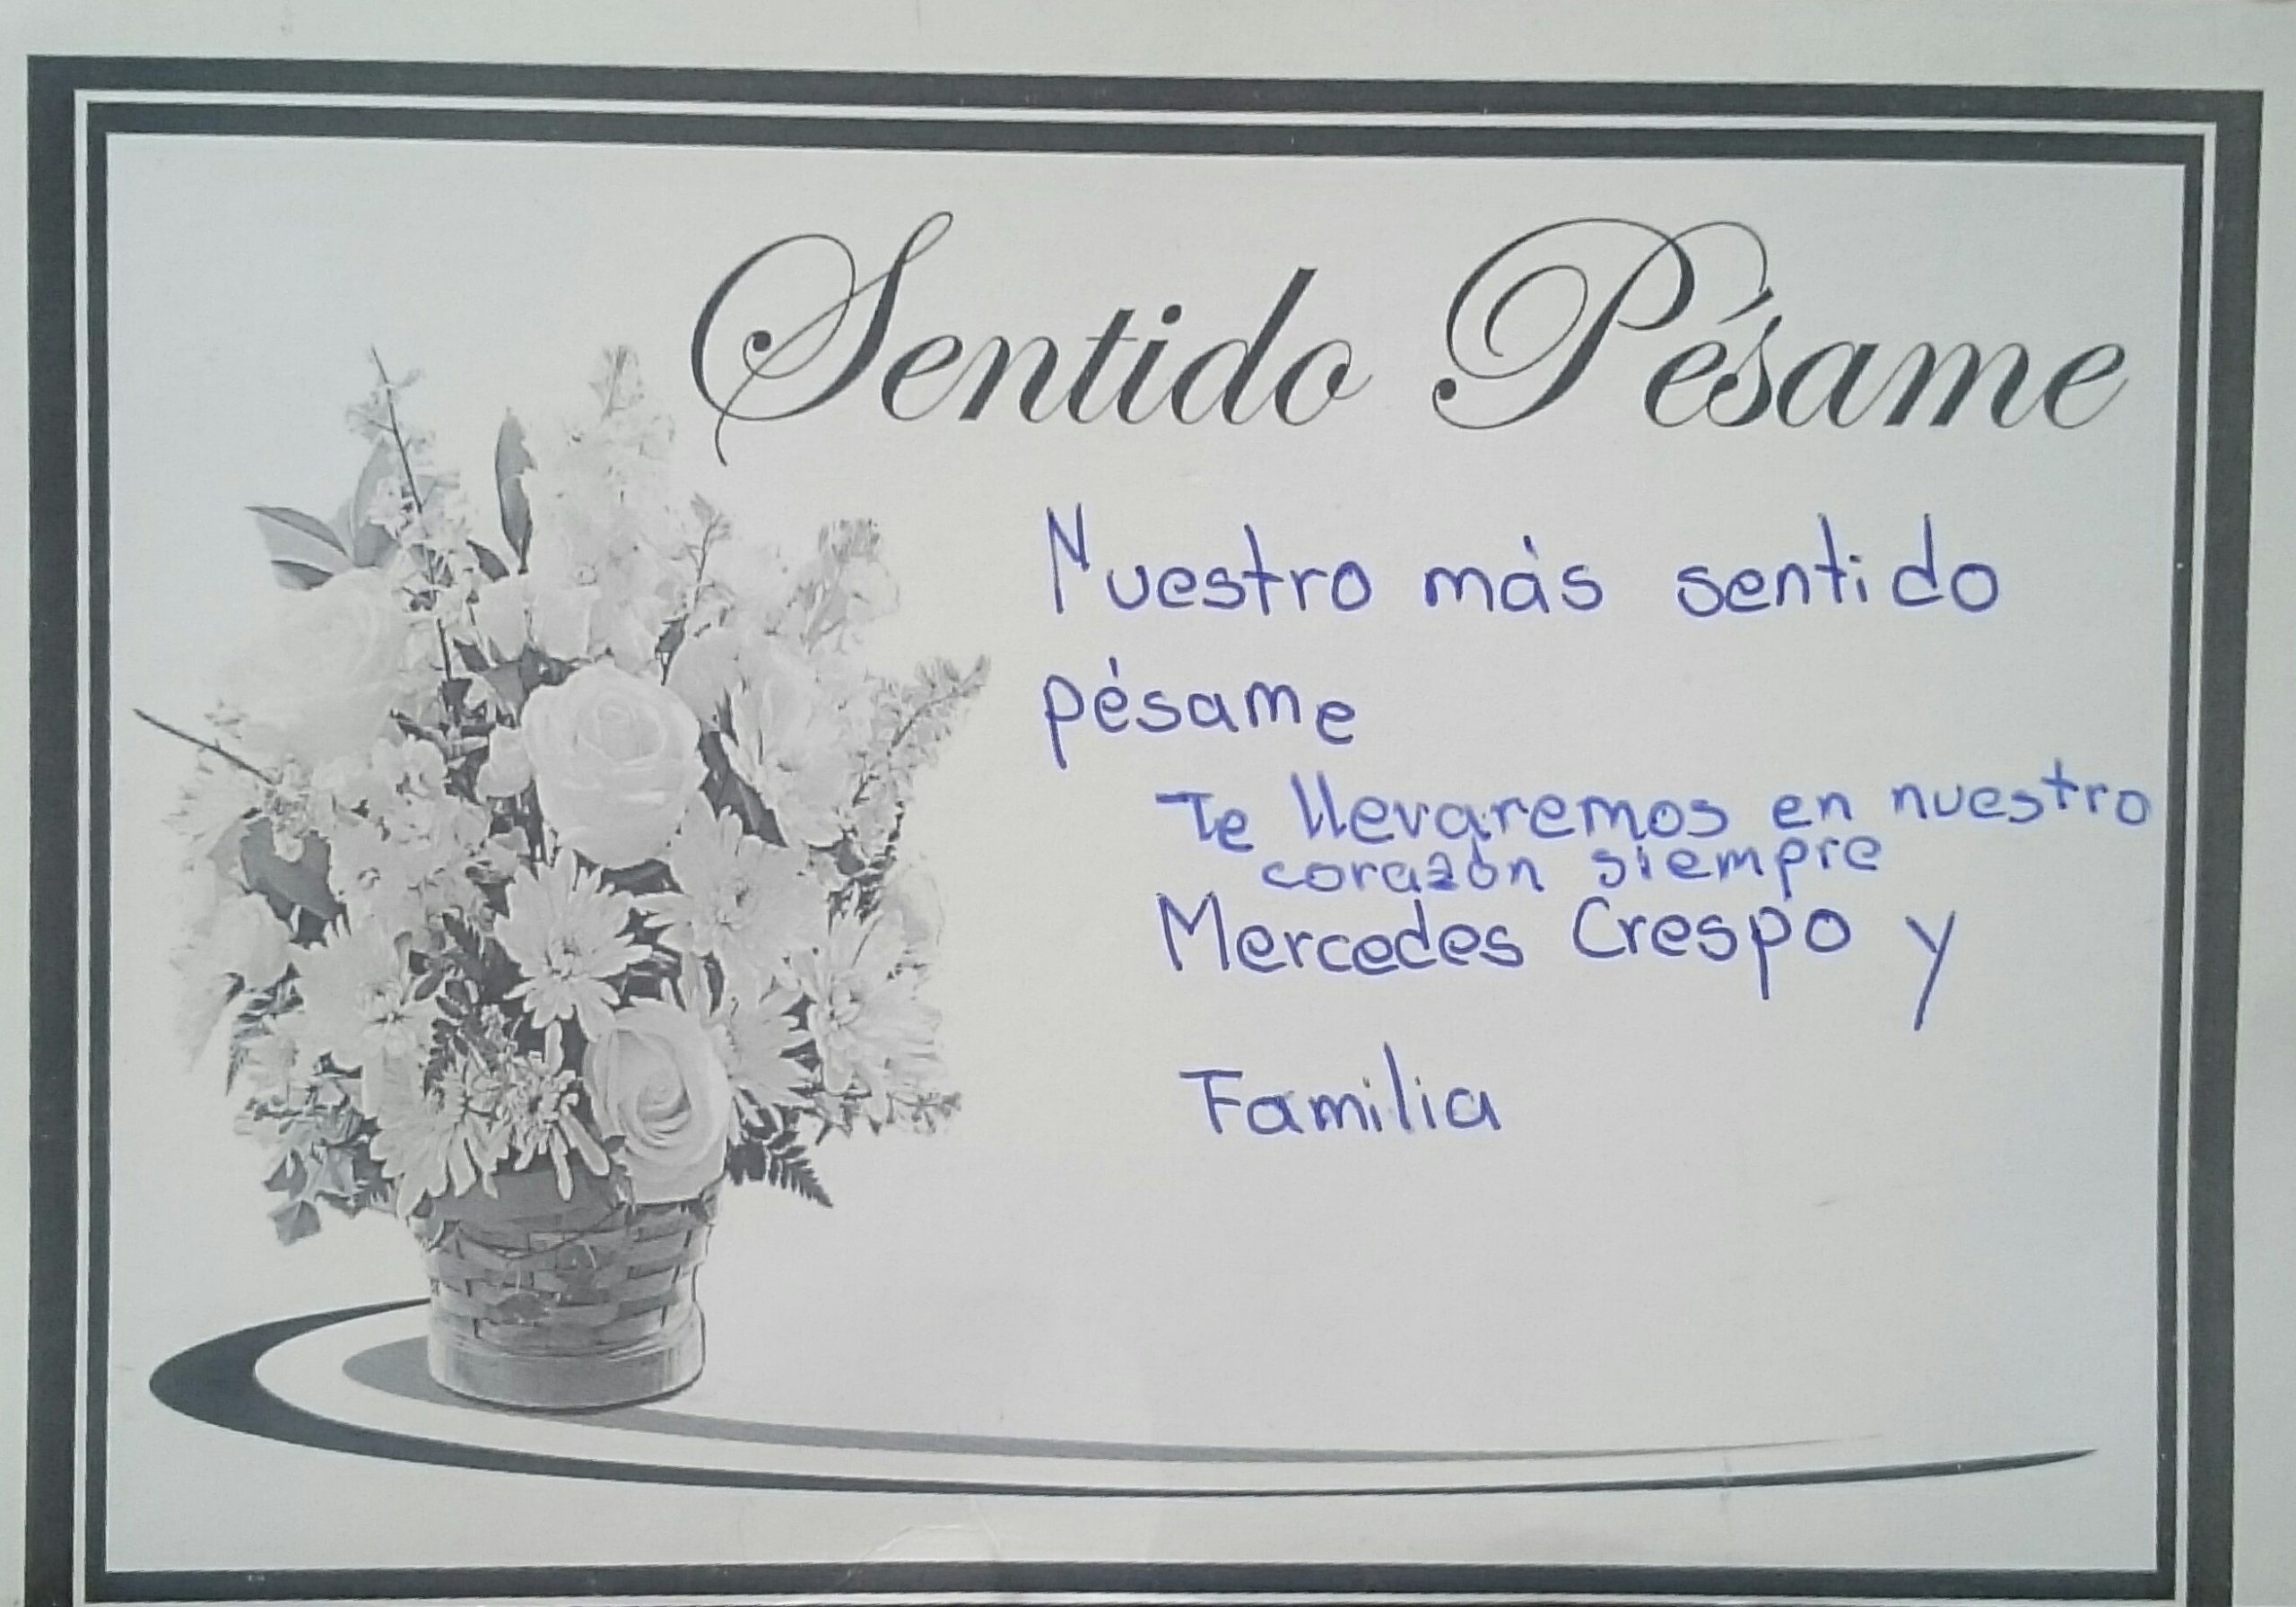 Sentido Pésame
Nuestro más sentido
pésame
Te llevaremos en nuestro
corazón siempre
Mercedes Crespo y
Familia